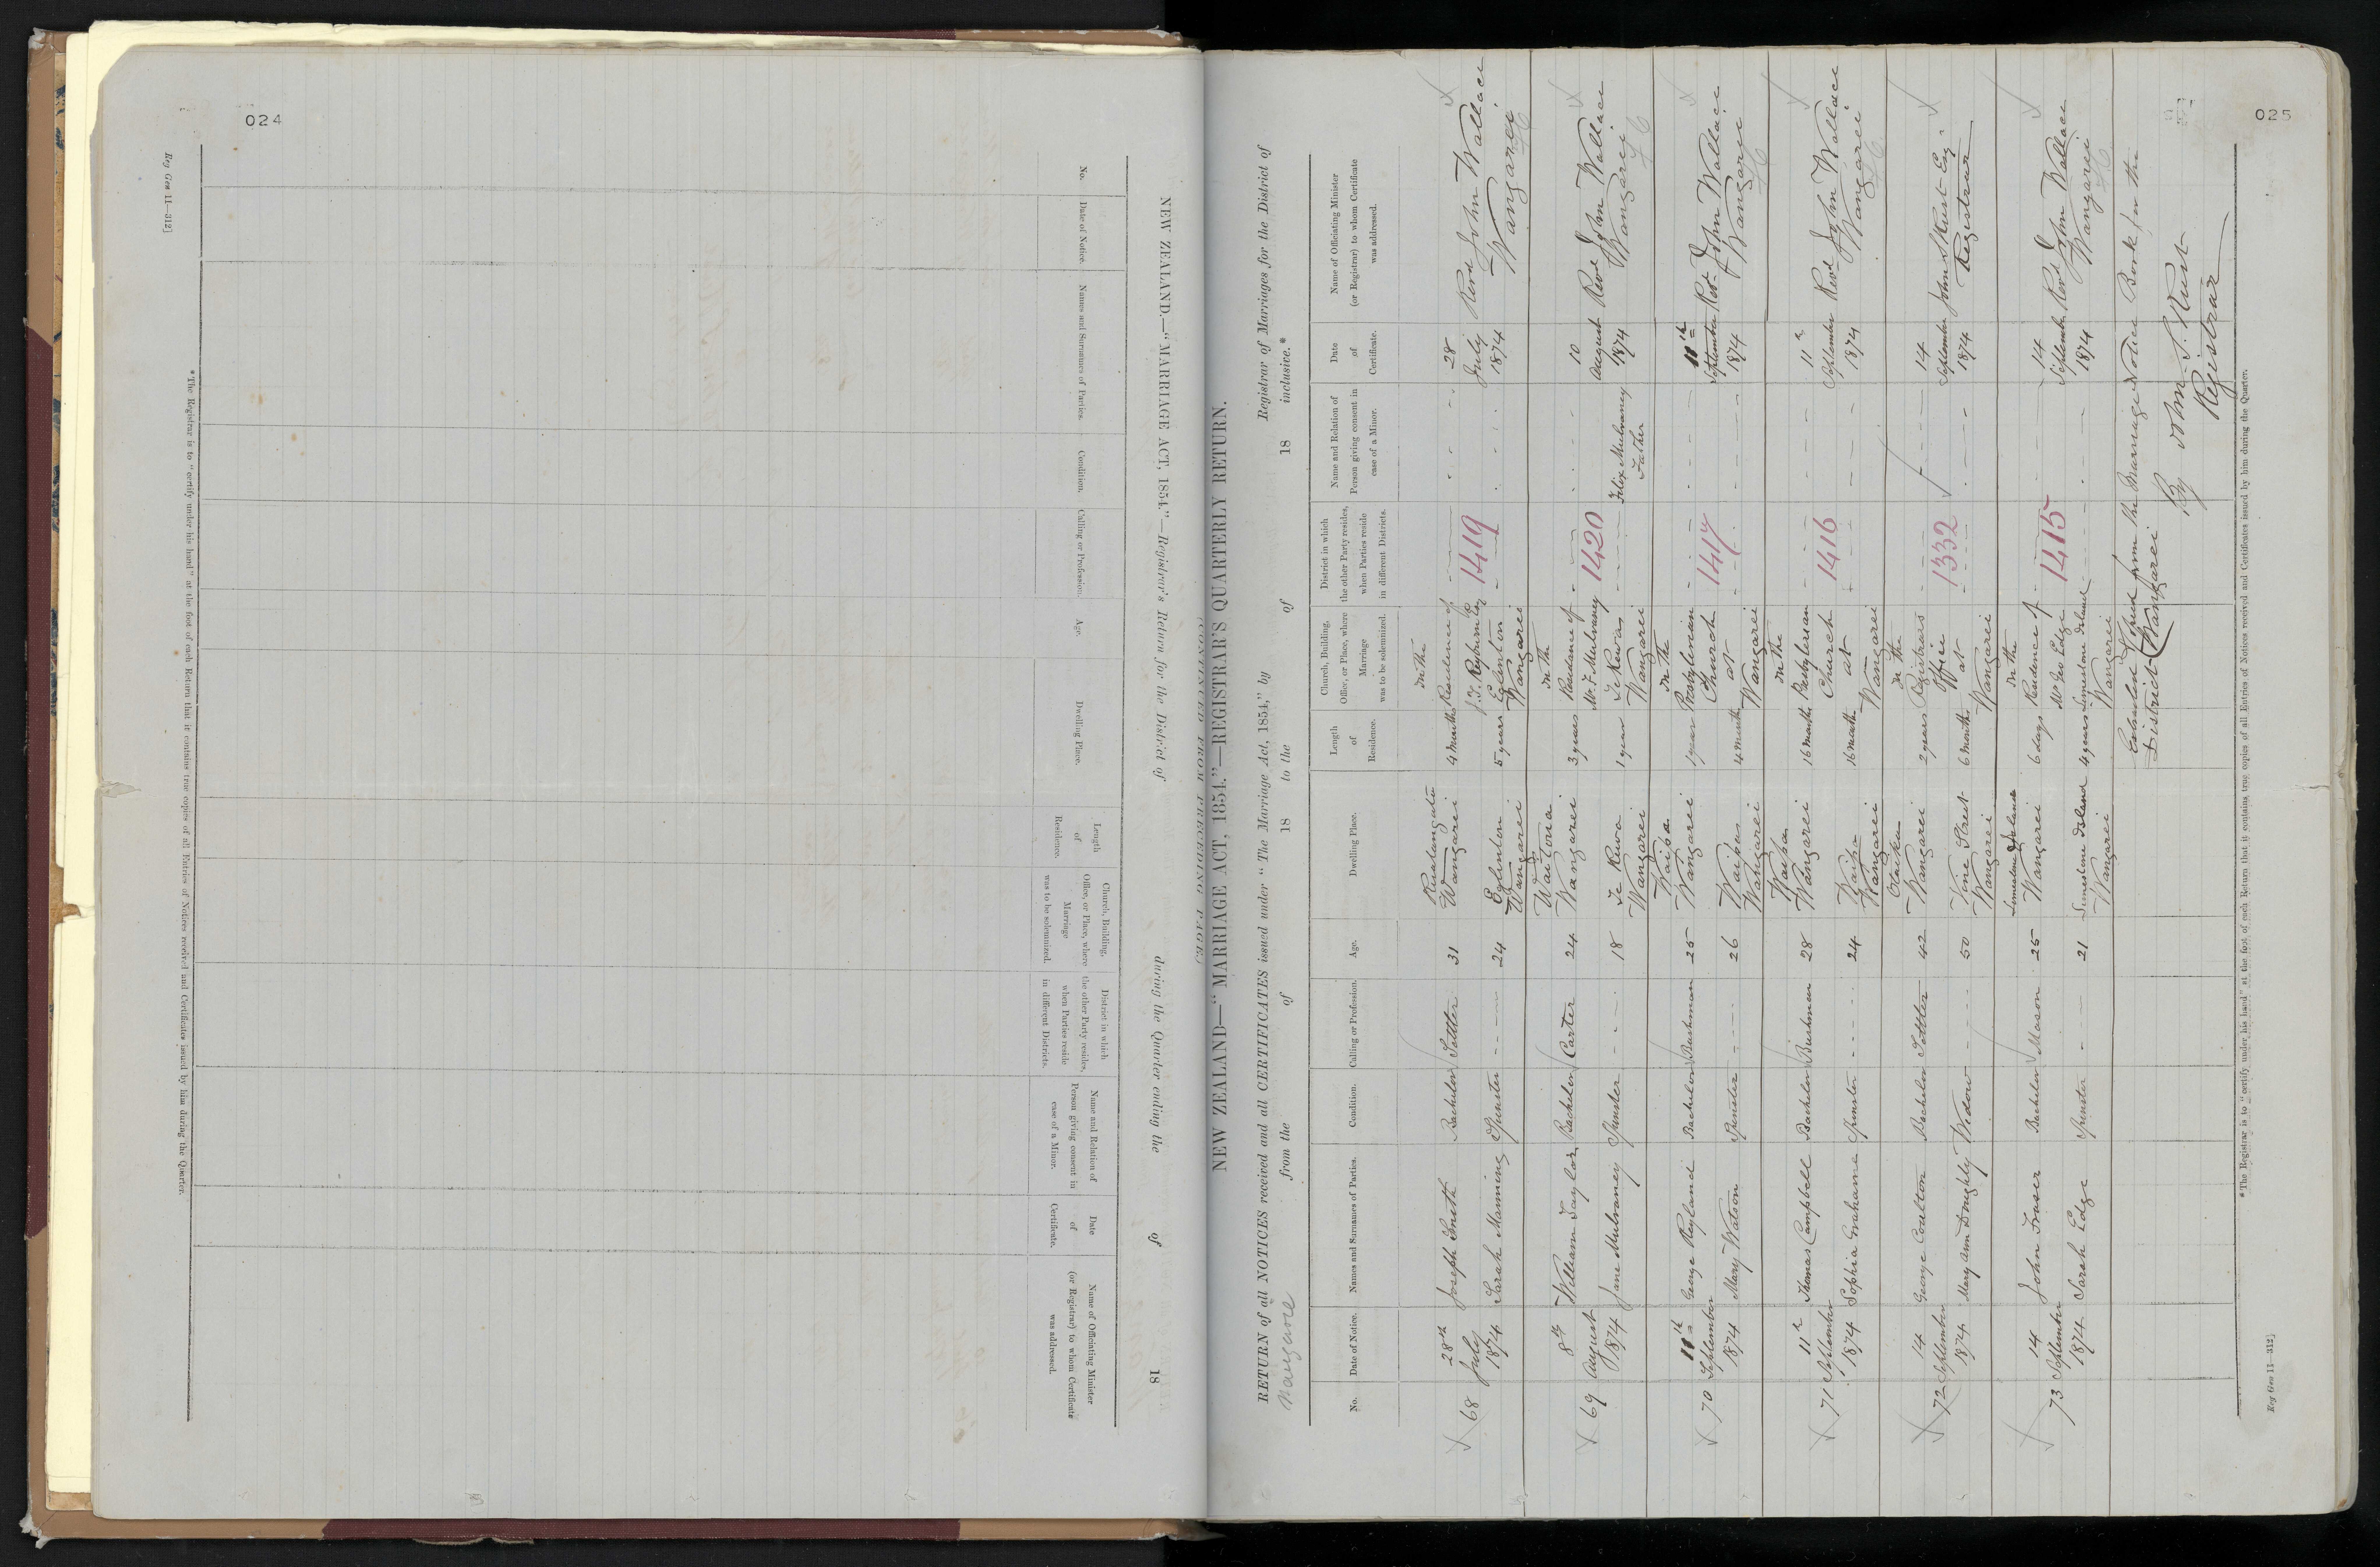 024
Reg Gen 11—312]
NEW ZEALAND.—"MARRIAGE ACT, 1854."—Registrar's Return for the District of during the Quarter ending the of 18
(CONTINUED FROM PRECEDING PAGE.)
No.
Date of Notice.
Names and Surnames of Parties.
Condition.
Calling or Profession.
Age.
Dwelling Place.
Length
of
Residence.
Church, Building,
Office, or Place, where
Marriage
was to be solemnized.
District in which
the other Party resides,
when Parties reside
in different Districts.
Name and Relation of
Person giving consent in
case of a Minor.
Date
of
Certificate.
Name of Officiating Minister
(or Registrar) to whom Certificate
was addressed.
*The Registrar is to "certify under his hand" at the foot of each Return that it contains true copies of all Entries of Notices received and Certificates issued by him during the Quarter.
025
NEW ZEALAND—"MARRIAGE ACT, 1854."—REGISTRAR'S QUARTERLY RETURN.
RETURN of all NOTICES received and all CERTIFICATES issued under "The Marriage Act, 1854," by Registrar of Marriages for the District of
from the of 18 to the of 18 inclusive.*
No.
Date of Notice.
Names and Surnames of Parties.
Condition.
Calling or Profession.
Age.
Dwelling Place.
Length
of
Residence.
Church, Building,
Office, or Place, where
Marriage
was to be solemnized.
District in which
the other Party resides,
when Parties reside
in different Districts.
Name and Relation of
Person giving consent in
case of a Minor.
Date
of
Certificate.
Name of Officiating Minister
(or Registrar) to whom Certificate
was addressed.
68
28th
July
1874
Joseph Smith
Sarah Manning
Bachelor
Spinster
Settler
31
24
Wangarei
Eglinton
Wangarei
4 months
5 years
In the
Residence of
Eglinton
Wangarei
1419
28
July
1874
Revd John Wallace
Wangarei
69
8th
August
1874
William Taylor
Jane Mulvaney
Bachelor
Spinster
Carter
24
18
Wangarei
Te Rewa
Wangarei
3 years
1 year
In the
Residence of
Mr F. Mulvaney
Te Rewa
Wangarei
1420
Felix Mulvaney
Father
10
August
1874
Revd John Wallace
Wangarei
70
11th
September
1874
George Rayland
Mary Watson
Bachelor
Spinster
Bushman
25
26
Waipu
Wangarei
Waipu
Wangarei
1 year
4 months
In the
Presbyterian
Church
at
Wangarei
1417
11th
September
1874
Revd John Wallace
Wangarei
71
11
September
1874
Thomas Campbell
Sophia Grahame
Bachelor
Spinster
Bushman
28
24
Waipu
Wangarei
Waipu
Wangarei
16 months
16 months
In the
Presbyterian
Church
at
Wangarei
1416
11
September
1874
Revd John Wallace
Wangarei
72
14
September
1874
George Coulton
Mary Ann Doughty
Bachelor
Widow
Settler
42
50
Wangarei
Vine Street
Wangarei
2 years
6 months
In the
Registrars
Office
at
Wangarei
1332
14
September
1874
John S. Rust Esq.
Registrar
73
14
September
1874
John Fraser
Sarah Edge
Bachelor
Spinster
Mason
25
21
Limestone Island
Wangarei
Limestone Island
Wangarei
6 days
4 years
In the
Residence of
Mr Geo Edge
Limestone Island
Wangarei
1415
14
September
1874
Revd John Wallace
Wangarei
Extracted & Copied from the Marriage Notice Book for the
District (Wangarei
By John S. Rust
Registrar
*The Registrar is to "certify under his hand" at the foot of each Return that it contains true copies of all Entries of Notices received and Certificates issued by him during the Quarter.
Reg Gen 11—312]